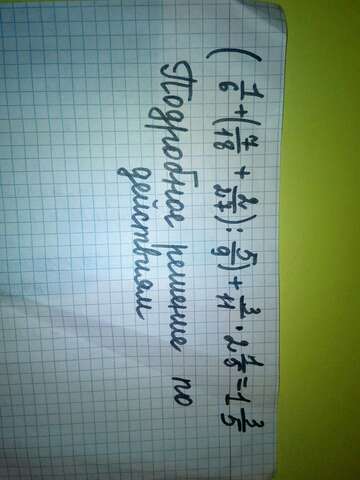 (1/6 + (7/18 + 2/27) : 5/9) + 3/11 · 2 1/5 = 1 3/5
Подробное решение по
действиям